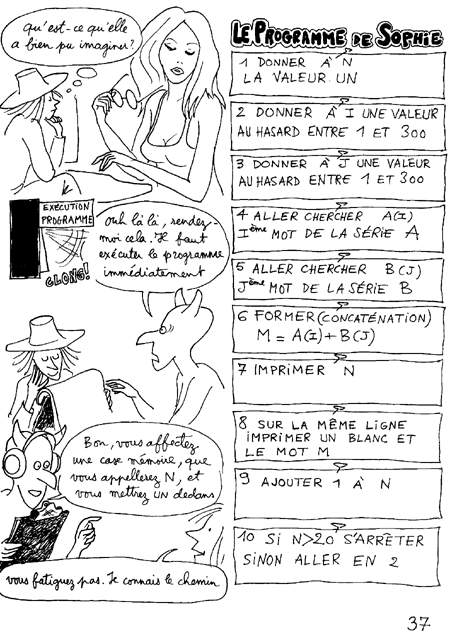 qu'est-ce qu'elle
a bien pu imaginer?
EXECUTION
PROGRAMME
GLONG!
Ouh là là, rendez-
moi cela. Il faut
exécuter le programme
immédiatement
Bon, vous affectez
une case mémoire, que
vous appellerez N, et
vous mettrez UN dedans
vous fatiguez pas. Je connais le chemin
LE PROGRAMME DE SOPHIE
1 DONNER À N
LA VALEUR UN
2 DONNER À I UNE VALEUR
AU HASARD ENTRE 1 ET 300
3 DONNER À J UNE VALEUR
AU HASARD ENTRE 1 ET 300
4 ALLER CHERCHER A(I)
Ième MOT DE LA SÉRIE A
5 ALLER CHERCHER B(J)
Jème MOT DE LA SÉRIE B
6 FORMER (CONCATÉNATION)
M = A(I)+B(J)
7 IMPRIMER N
8 SUR LA MÊME LIGNE
IMPRIMER UN BLANC ET
LE MOT M
9 AJOUTER 1 À N
10 SI N>20 S'ARRÊTER
SINON ALLER EN 2
37